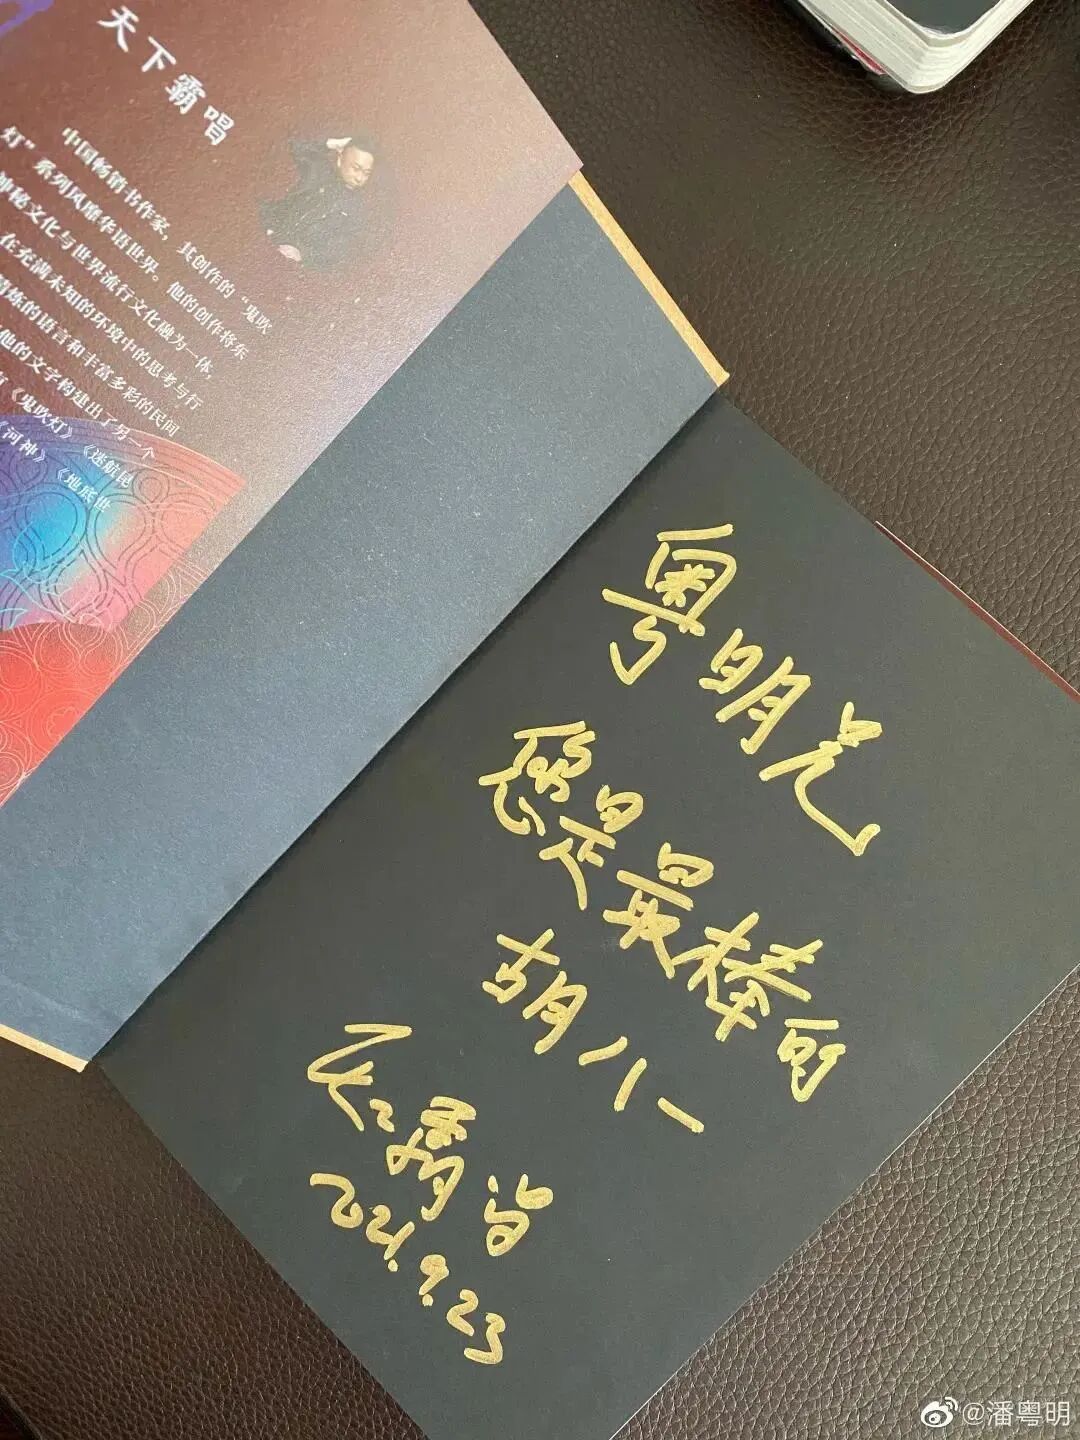 天下霸唱
中国畅销书作家，其创作的“鬼吹
灯”系列风靡华语世界。他的创作将东
神秘文化与世界流行文化融为一体，
在充满未知的环境中的思考与行
精炼的语言和丰富多彩的民间
他的文字构建出了另一个
《鬼吹灯》《迷航昆
《河神》《地底世
粤明兄
您是最棒的
胡八一
天下霸唱
2021.9.23
@潘粤明